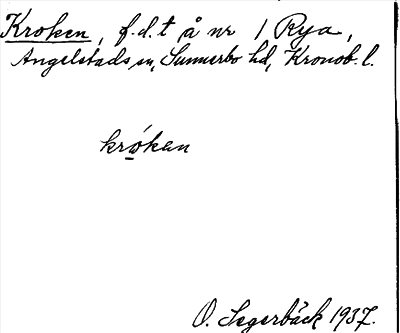 Kroken, f.d.t å nr 1 Rya,
Angelstads sn, Sunnerbo hd, Kronob. l.
krọ́ken
O. Segerbäck 1937.